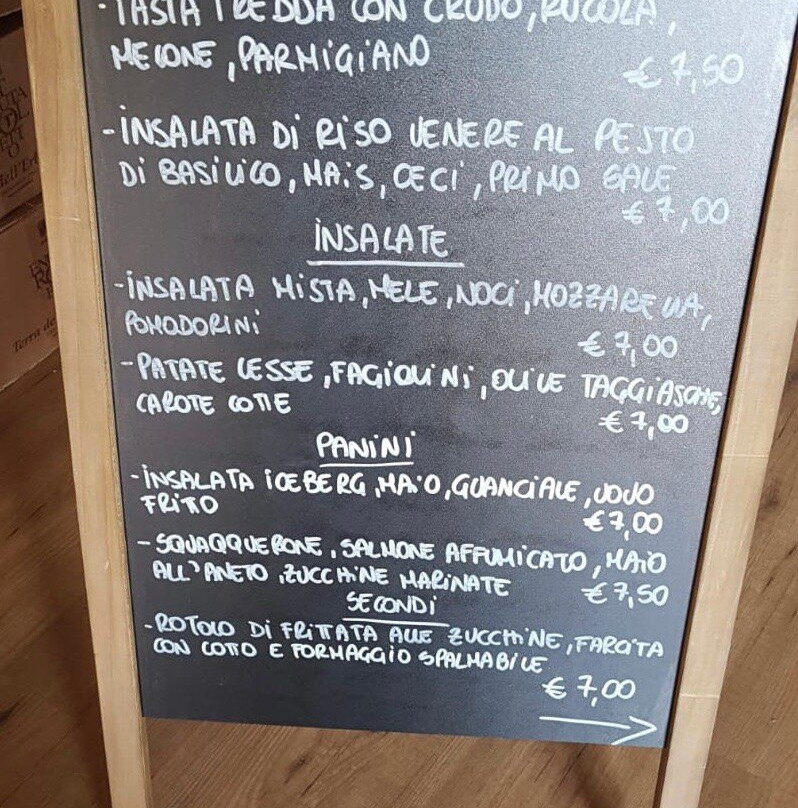 - PASTA FREDDA CON CRUDO, RUCOLA,
MELONE, PARMIGIANO
€ 7,50
- INSALATA DI RISO VENERE AL PESTO
DI BASILICO, MAIS, CECI, PRIMO SALE
€ 7,00
INSALATE
- INSALATA MISTA, MELE, NOCI, MOZZARELLA,
POMODORINI
€ 7,00
- PATATE LESSE, FAGIOLINI, OLIVE TAGGIASCHE,
CAROTE COTTE
€ 7,00
PANINI
- INSALATA ICEBERG, MAIO, GUANCIALE, UOVO
FRITTO
€ 7,00
- SQUAQQUERONE, SALMONE AFFUMICATO, MAIO
ALL'ANETO, ZUCCHINE MARINATE € 7,50
SECONDI
- ROTOLO DI FRITTATA ALLE ZUCCHINE, FARCITA
CON COTTO E FORMAGGIO SPALMABILE
€ 7,00